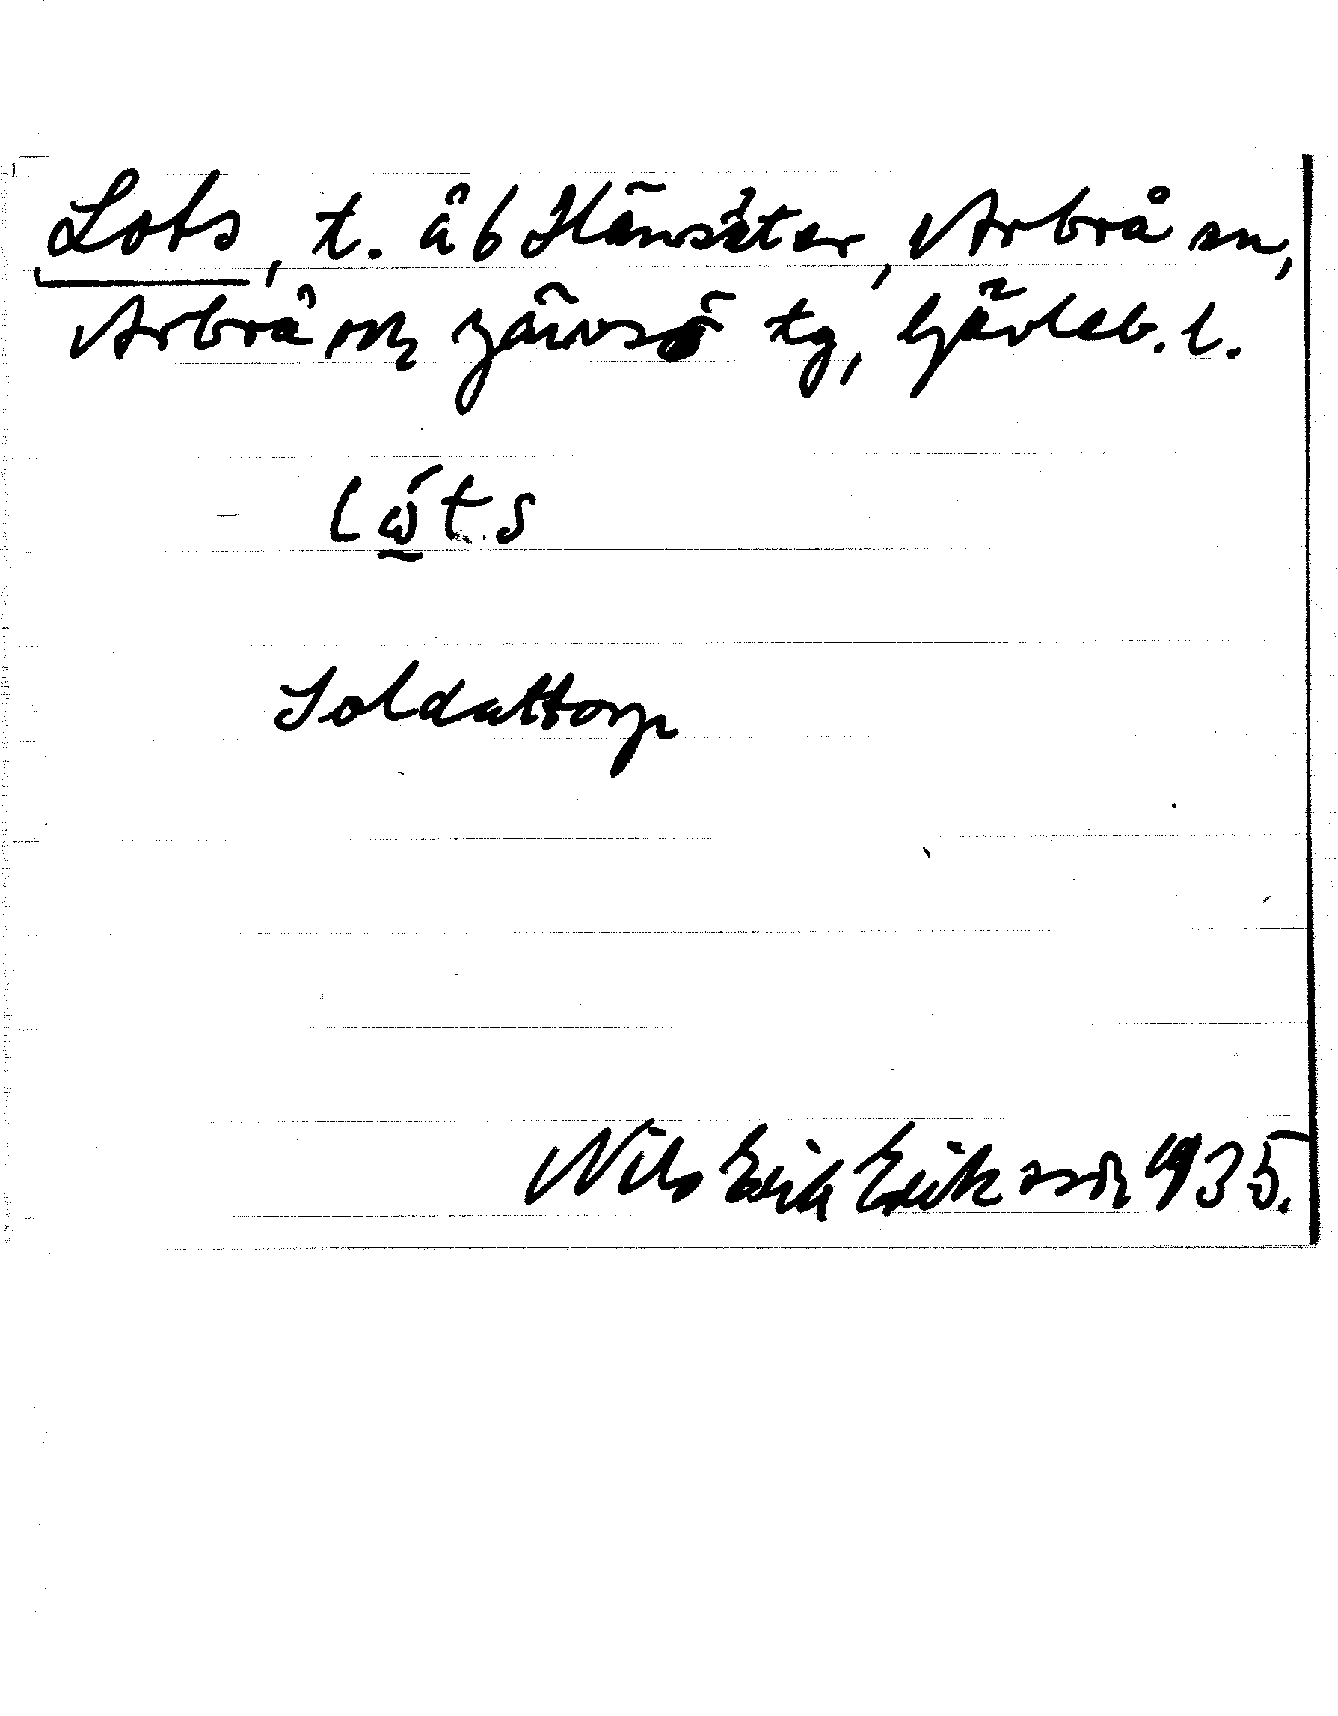 Lots, t. å 6 Hänsäter, Arbrå sn,
Arbrå och Järvsö tg, Gävleb. l.
lώts
Soldattorp
Nils Erik Eriksson 1935.